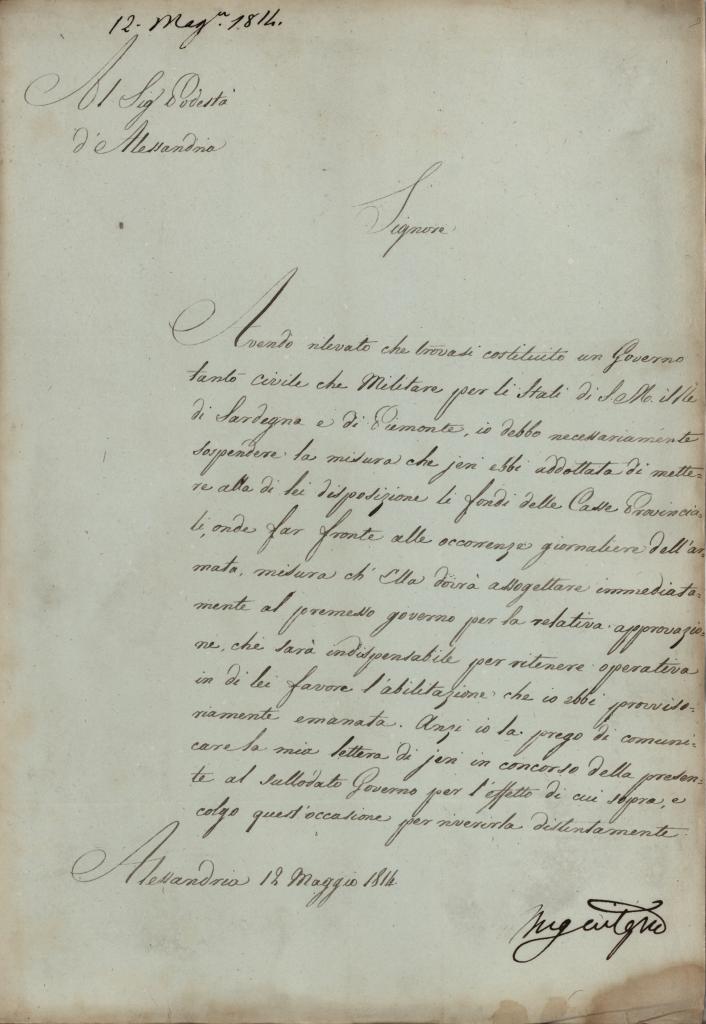 12. Mag.º 1814.
Al Sig.r Podestà
d'Alessandria
Signore
Avendo rilevato che trovasi costituito un Governo
tanto civile che Militare per li Stati di S. M. il Re
di Sardegna e di Piemonte, io debbo necessariamente
sospendere la misura che jeri ebbi addottata di mette=
re alla di lei disposizione li fondi delle Casse Provincia=
li, onde far fronte alle occorrenze giornaliere dell'ar=
mata, misura ch'Ella dovrà assogettare immediata=
mente al premesso governo per la relativa approvazio=
ne, che sarà indispensabile per ritenere operativa
in di lei favore l'abilitazione che io ebbi provviso=
riamente emanata. Anzi io la prego di comuni=
care la mia lettera di jeri in concorso della presen=
te al sullodato Governo per l'effetto di cui sopra, e
colgo quest'occasione per riverirla distintamente.
Alessandria 12 Maggio 1814